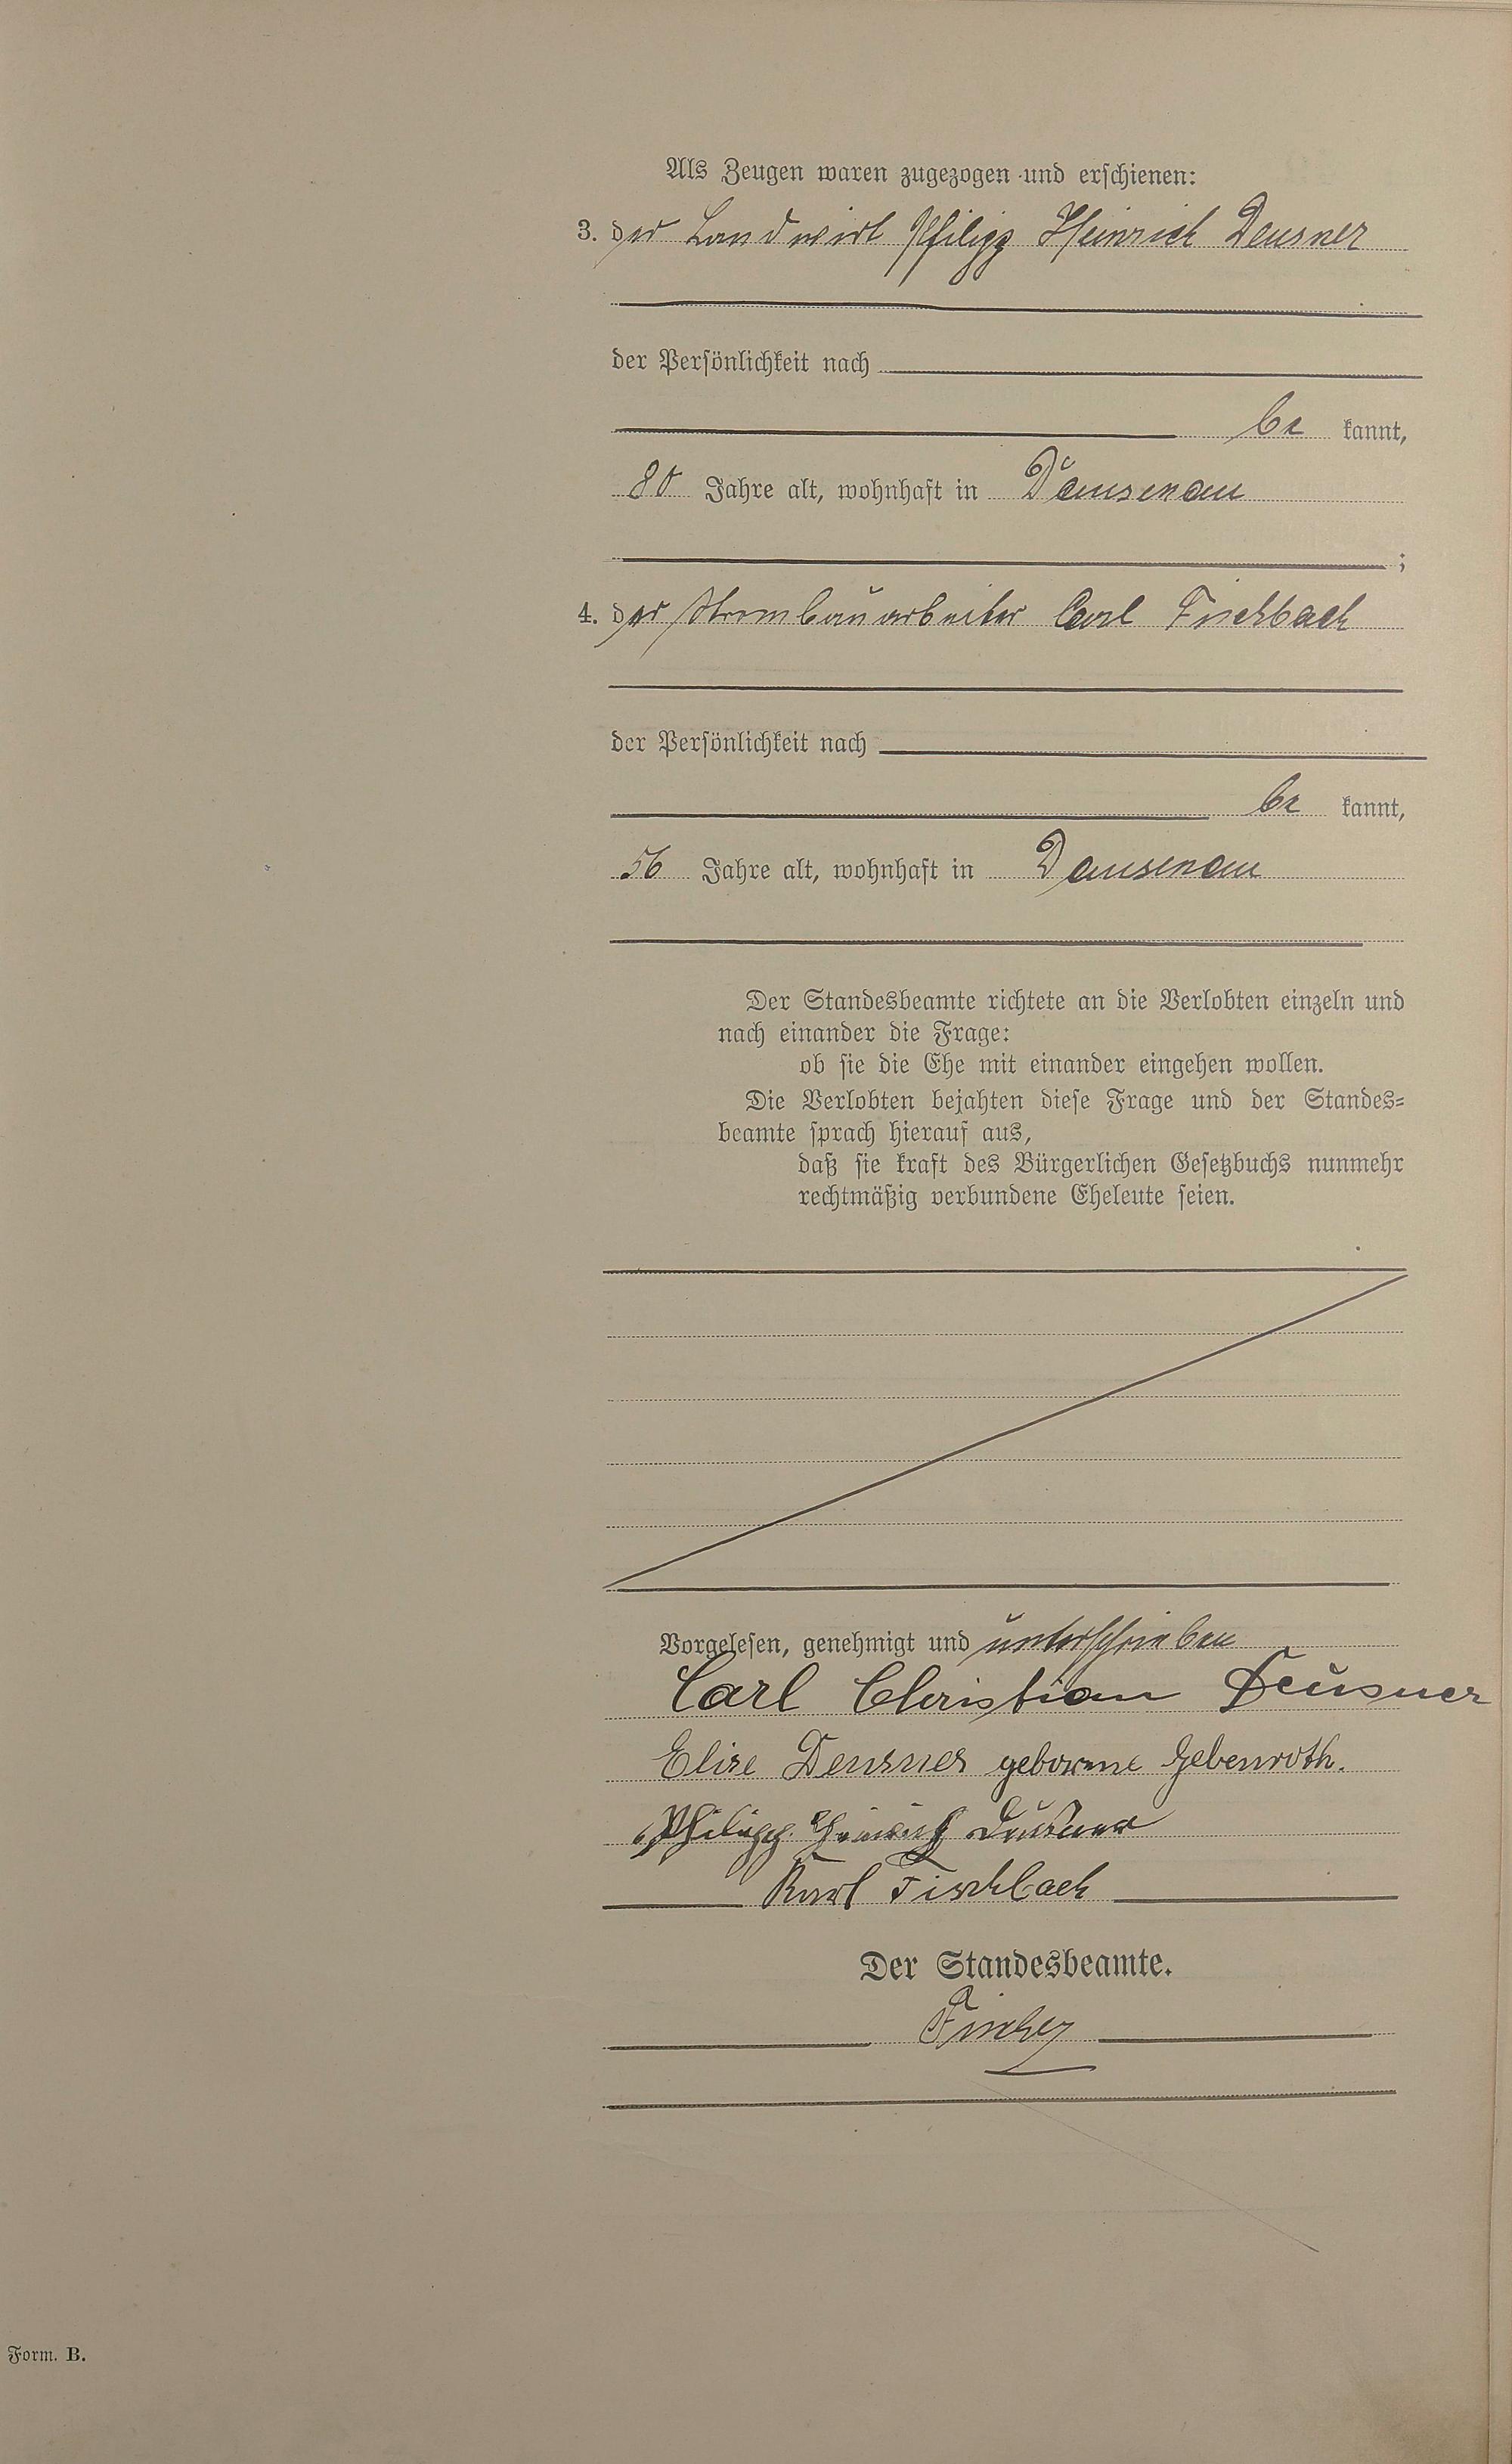 Als Zeugen waren zugezogen und erschienen:
3. der Landwirt Philipp Heinrich Deusner
der Persönlichkeit nach
be kannt,
80 Jahre alt, wohnhaft in Dausenau
;
4. der Strombauarbeiter Carl Fischbach
der Persönlichkeit nach
be kannt,
56 Jahre alt, wohnhaft in Dausenau
Der Standesbeamte richtete an die Verlobten einzeln und
nach einander die Frage:
ob sie die Ehe mit einander eingehen wollen.
Die Verlobten bejahten diese Frage und der Standes=
beamte sprach hierauf aus,
daß sie kraft des Bürgerlichen Gesetzbuchs nunmehr
rechtmäßig verbundene Eheleute seien.
Vorgelesen, genehmigt und unterschrieben
Carl Christian Deusner
Elise Deusner geborene Gebenroth.
Philipp Heinrich Deusner
Karl Fischbach
Der Standesbeamte.
Form. B.